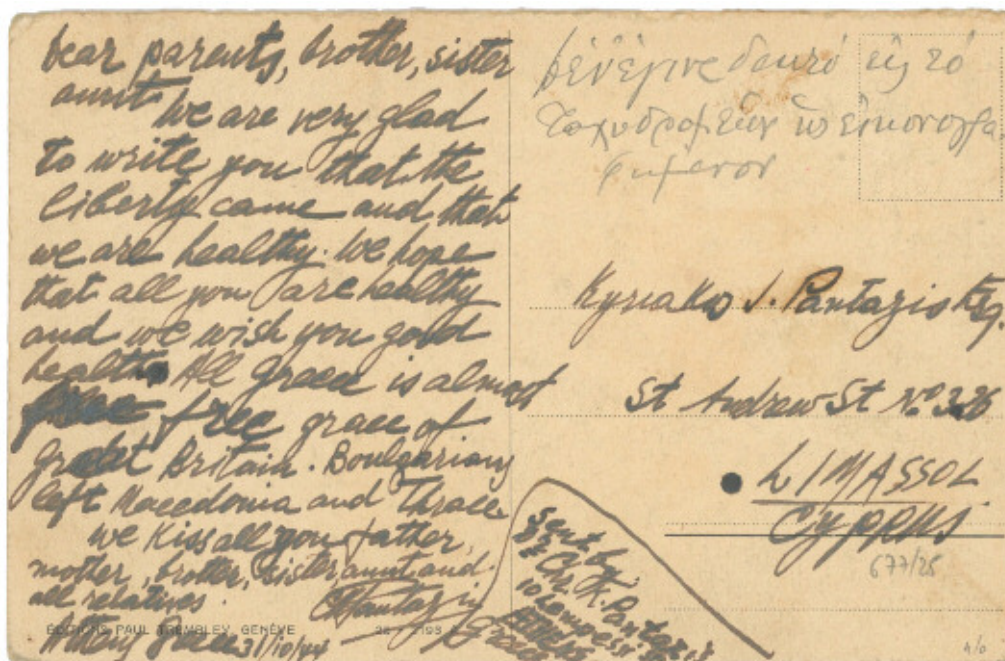 Dear parents, brother, sister
aunt We are very glad
to write you that the
liberty came and that
we are healthy. We hope
that all you are healthy
and we wish you good
health. All Greece is almost
free grace of
Great Britain. Boulgarians
left Macedonia and Thrace
We kiss all you father,
mother, brother, sister, aunt and
all relatives.
EDITIONS PAUL TREMBLEY, GENÈVE
31/10/44
δὲν ἔγινε δεκτὸ εἰς τὸ
Ταχυδρομεῖον
Kyriakos J. Pantazis Esq.
St Andrew St Nº 326
LIMASSOL
Cyprus
677/25
Sent by
Chr. K. Pantazis
Athens
Greece